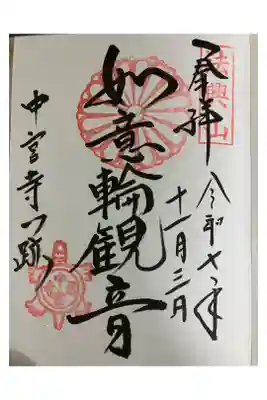 法興山
奉拝
令和七年
十一月三日
如意輪観音
中宮寺門跡